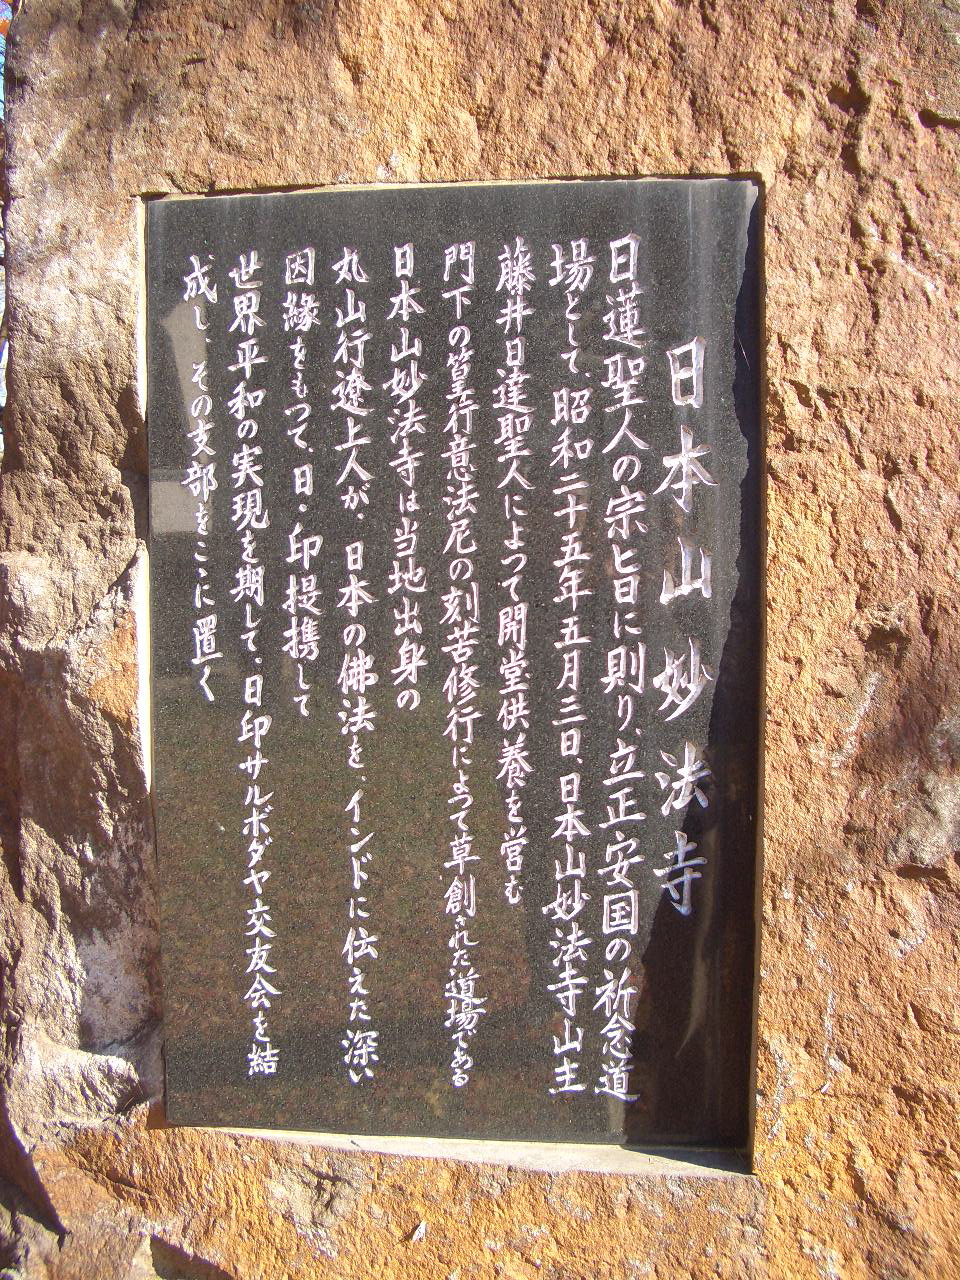 日本山妙法寺
日蓮聖人の宗旨に則り、立正安国の祈念道
場として、昭和二十五年五月三日、日本山妙法寺山主
藤井日達聖人によつて開堂供養を営む
門下の篁行意法尼の刻苦修行によつて草創された道場である
日本山妙法寺は当地出身の
丸山行遼上人が、日本の佛法を、インドに伝えた深い
因縁をもつて、日・印提携して
世界平和の実現を期して、日印サルボダヤ交友会を結
成し、その支部をここに置く